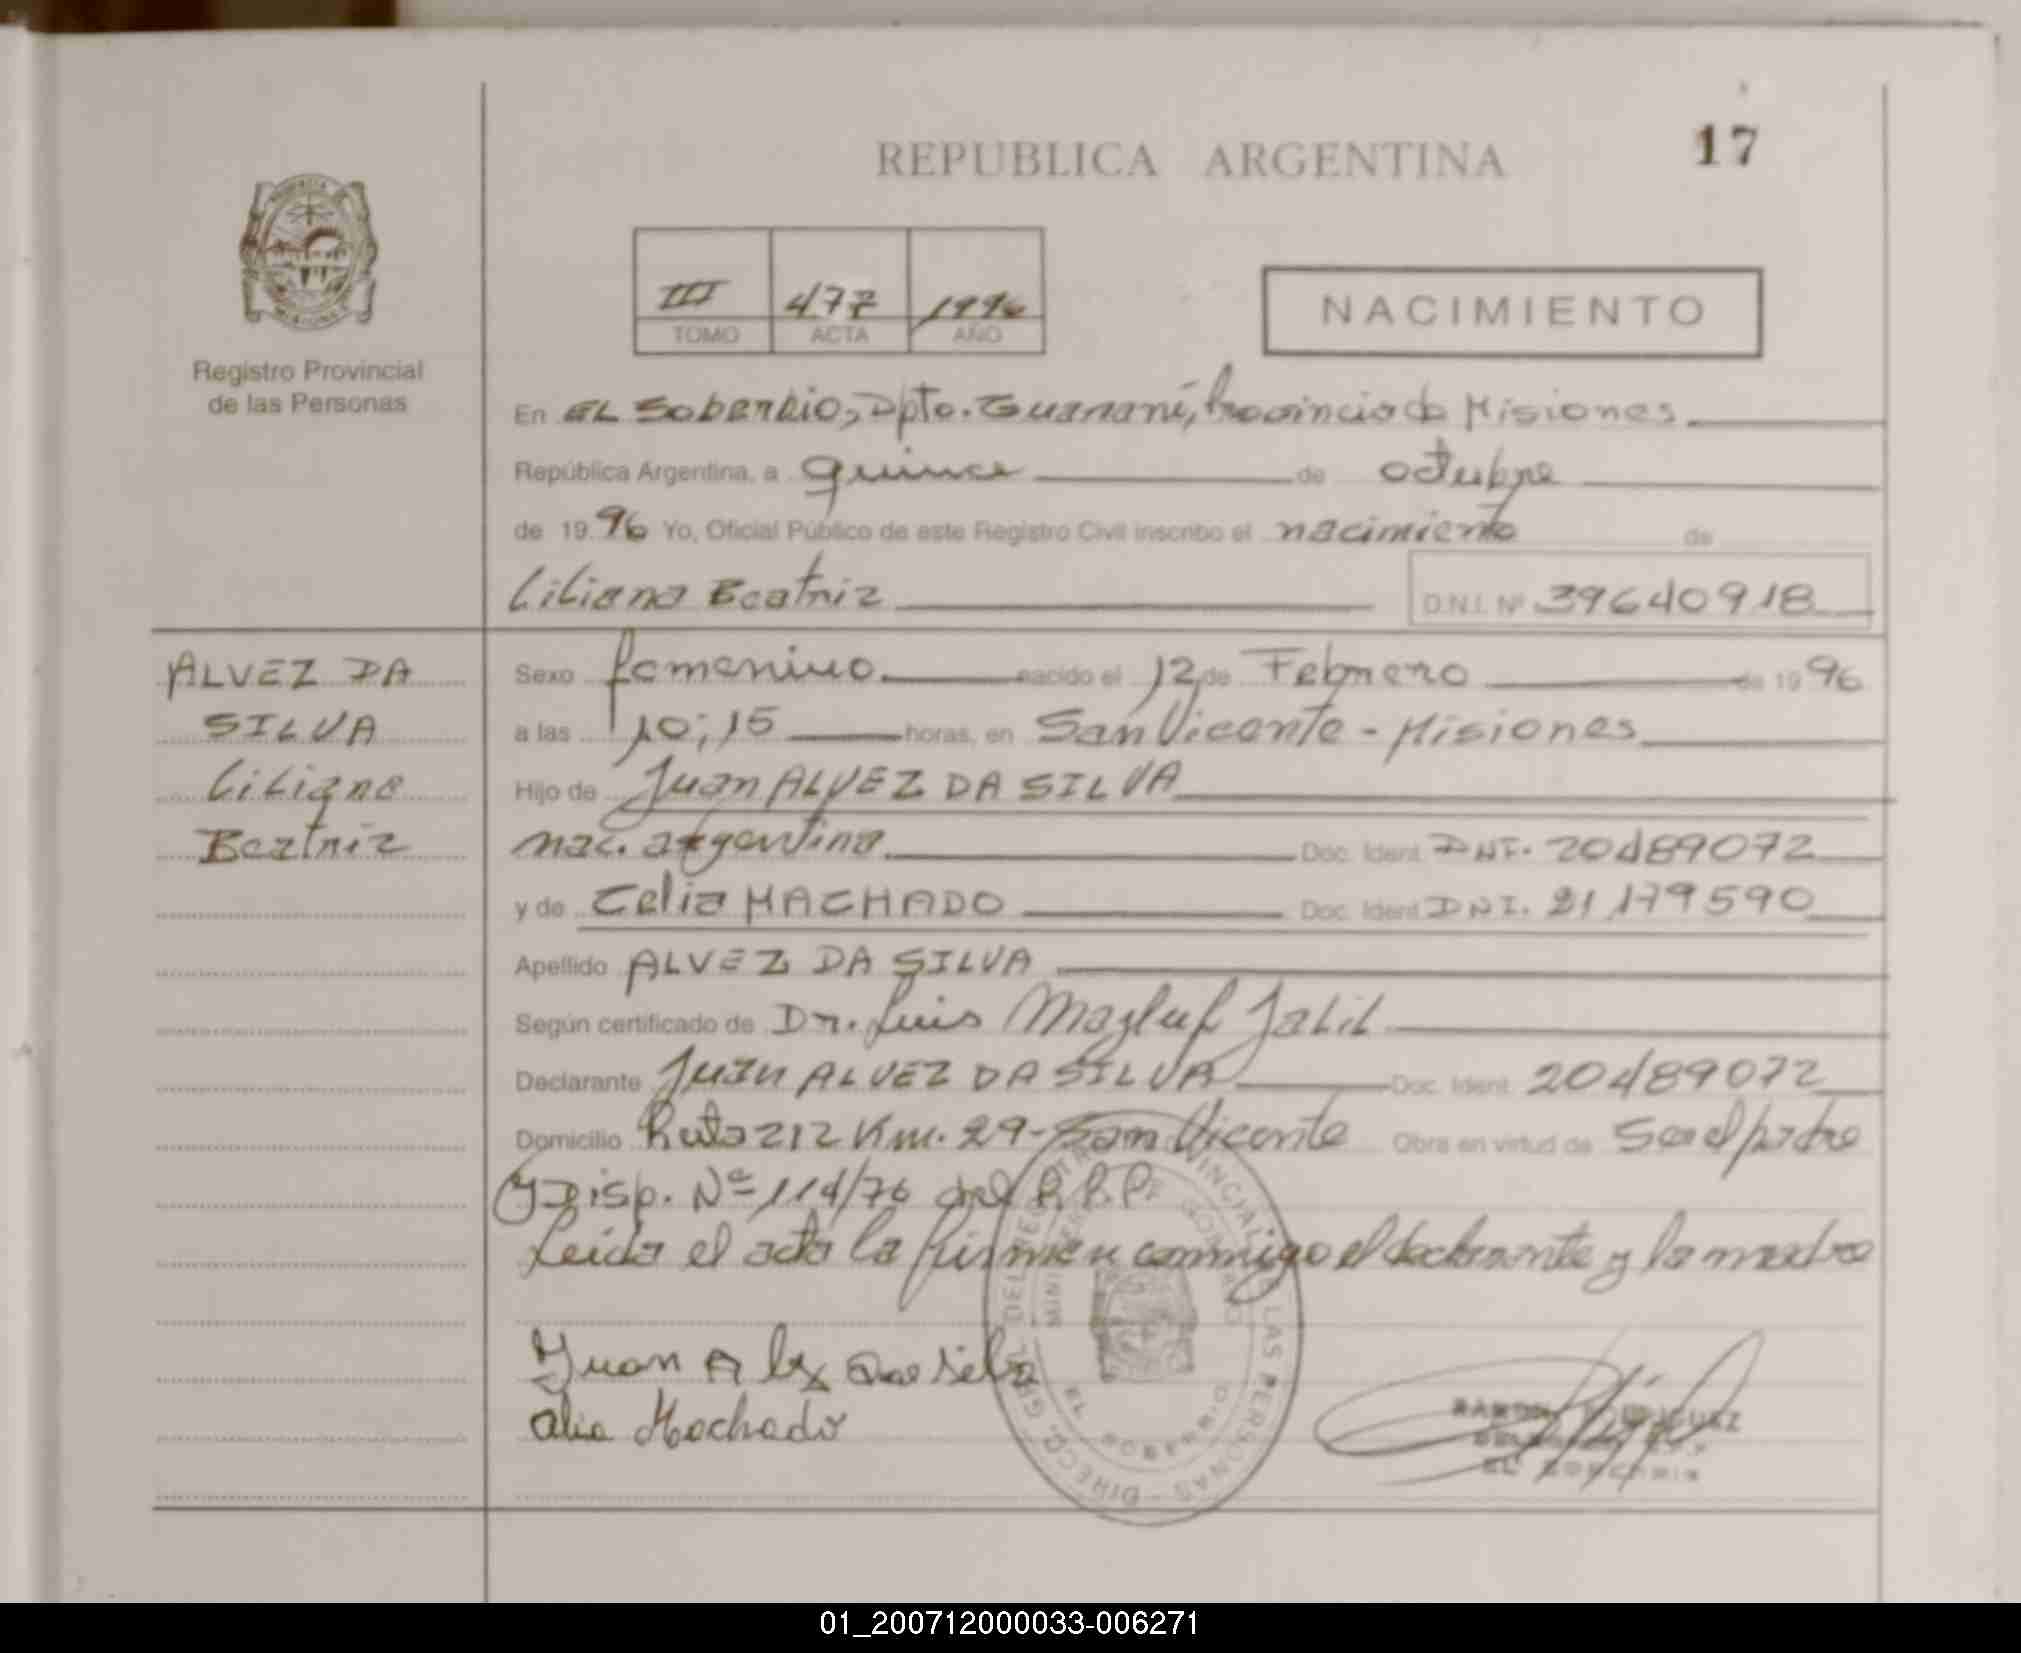 17
REPUBLICA ARGENTINA
III 477 1996
TOMO ACTA AÑO
NACIMIENTO
Registro Provincial
de las Personas
En EL Soberbio, Dpto. Guaraní, Provincia de Misiones
República Argentina, a quince de octubre
de 1996 Yo, Oficial Público de este Registro Civil inscribo el nacimiento de
Liliana Beatriz D.N.I. Nº 39640918
ALVEZ DA
SILVA
Liliana
Beatriz
Sexo femenino nacido el 12 de Febrero de 1996
a las 10;15 horas, en San Vicente - Misiones
Hijo de Juan ALVEZ DA SILVA
nac. argentina Doc. Ident. DNI. 20489072
y de Celia MACHADO Doc. Ident. DNI. 21.179590
Apellido ALVEZ DA SILVA
Según certificado de Dr. Luis Mazluf Jalil
Declarante Juan ALVEZ DA SILVA Doc. Ident. 20489072
Domicilio Ruta 212 Km. 29 - San Vicente Obra en virtud de Ser el padre
y Disp. Nº 114/76 del R.P.P.
Leída el acta la firman conmigo el declarante y la madre
Juan Alvez Da Silva
Celia Machado
DIRECC. GRAL. DEL REGISTRO PROVINCIAL DE LAS PERSONAS
EL SOBERBIO
EL SOBERBIO
01_200712000033-006271